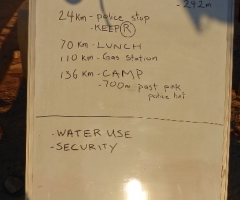 - 242m
24km - police stop
- KEEP R
70 km - LUNCH
110 km - Gas station
136 km - CAMP
- 700m past pak
police hut
- WATER USE
- SECURITY